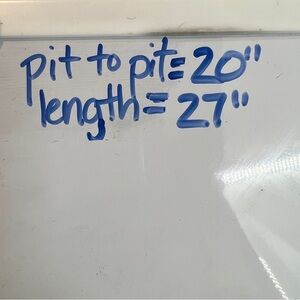 pit to pit = 20"
length = 27"